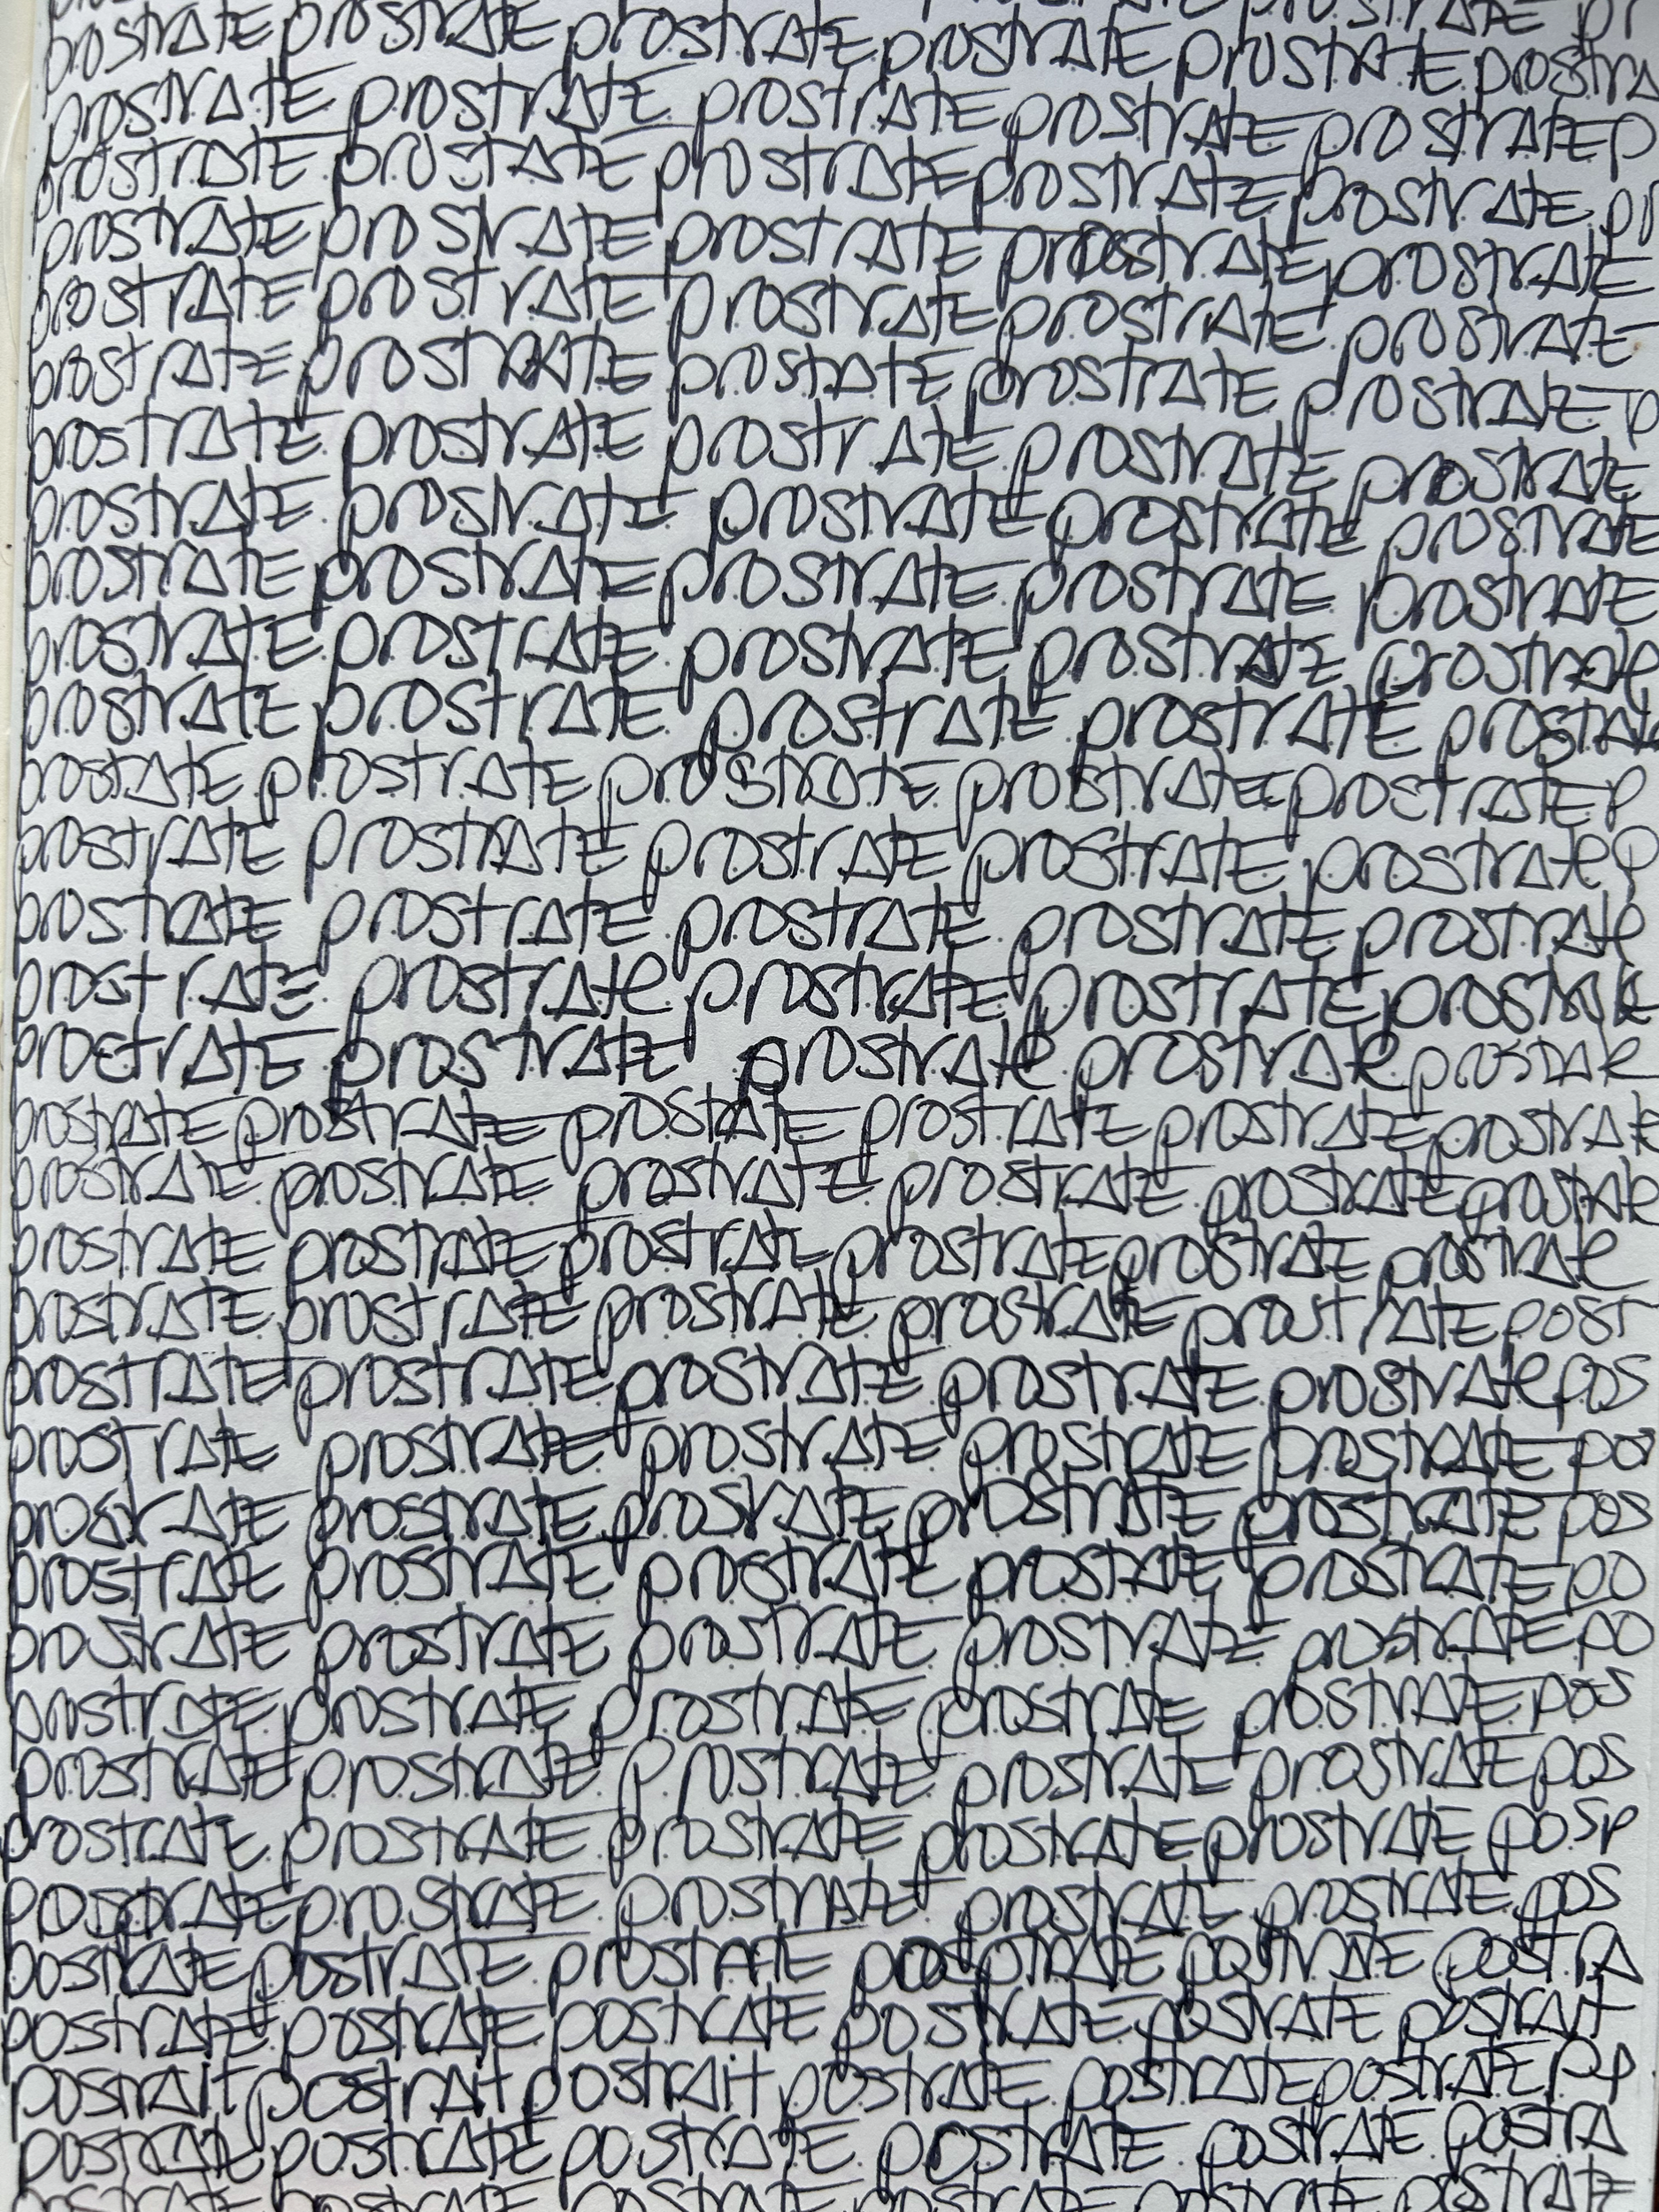 prostrate pr
prostrate prostrate prostrate prostrate prostrate prostra
prostrate prostrate prostrate prostrate prostrate p
prostrate prostate prostrate prostrate prostrate pr
prostrate prostrate prostrate prostrate prostrate
prostrate prostrate prostrate prostrate prostrate
prostrate prostrate prostate prostrate prostrate p
prostrate prostrate prostrate prostrate prostrate
prostrate prostrate prostrate prostrate prostrate
prostrate prostrate prostrate prostrate prostrate
prostrate prostrate prostrate prostrate prostrate
prostrate prostrate prostrate prostrate
prostate prostrate prostrate prostrate prostrate p
prostrate prostrate prostrate prostrate prostrate p
prostrate prostrate prostrate prostrate prostrate
prostrate prostrate prostrate prostrate
proetrate prostrate prostrate prostrate
prostrate prostrate prostate prostrate prostrate prostrate
prostrate prostrate prostrate prostrate prostrate prostrate
prostrate prostrate prostrate prostrate prostrate prostrate
prostrate prostrate prostrate prostrate post
prostrate prostrate prostrate prostrate prostrate pos
prostrate prostrate prostrate prostrate prostrate pos
prostrate prostrate prostrate prostrate prostrate pos
prostrate prostrate prostrate prostate prostrate po
prostrate prostrate prostrate prostrate prostrate po
prostrate prostrate prostrate prostrate prostrate pos
prostrate prostrate prostrate prostrate prostrate pos
prostrate prostrate prostrate prostrate prostrate posp
prostrate prostrate prostrate prostrate pos
postrate postrate prostate postrate postra
postrate postrate postrate postrate postrate postrait
postrait postrait postrait postrate postrate postrate pp
postrate postrate postrate postrate postrate postra
postrate postrate postrate postrate postrate postrate